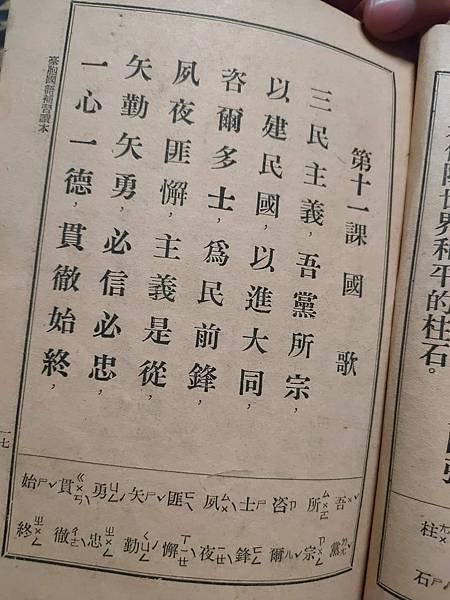 保障世界和平的柱石。
柱ㄓㄨˋ
石ㄕˊ
第十一課 國歌
三民主義，吾黨所宗，
以建民國，以進大同，
咨爾多士，爲民前鋒，
夙夜匪懈，主義是從，
矢勤矢勇，必信必忠，
一心一德，貫徹始終，
吾ㄨˊ 所ㄙㄨㄛˇ 咨ㄗ 士ㄕˋ 夙ㄙㄨˋ 匪ㄈㄟˇ 矢ㄕˇ 勇ㄩㄥˇ 貫ㄍㄨㄢˋ 始ㄕˇ
黨ㄉㄤˇ 宗ㄗㄨㄥ 爾ㄦˇ 鋒ㄈㄥ 夜ㄧㄝˋ 懈ㄒㄧㄝˋ 勤ㄑㄧㄣˊ 忠ㄓㄨㄥ 徹ㄔㄜˋ 終ㄓㄨㄥ
臺胞國語補習讀本
一七